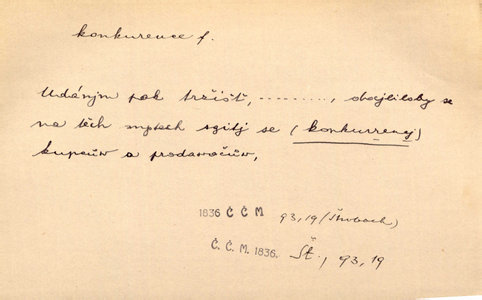 konkurence f.
Udánjm pak tržišť, ..........., obdjlilsby se
na těch mjstech sgitj se (konkurrencj)
kupcůw a prodawačůw,
1836 Č Č M 93, 19 (Štorbach)
Č. Č. M. 1836. Št., 93, 19